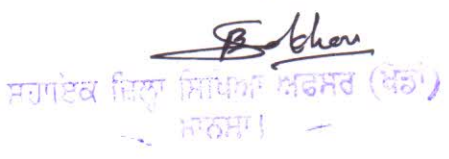 ਸਹਾਇਕ ਜ਼ਿਲ੍ਹਾ ਸਿੱਖਿਆ ਅਫਸਰ (ਖੇਡਾਂ)
ਮਾਨਸਾ।